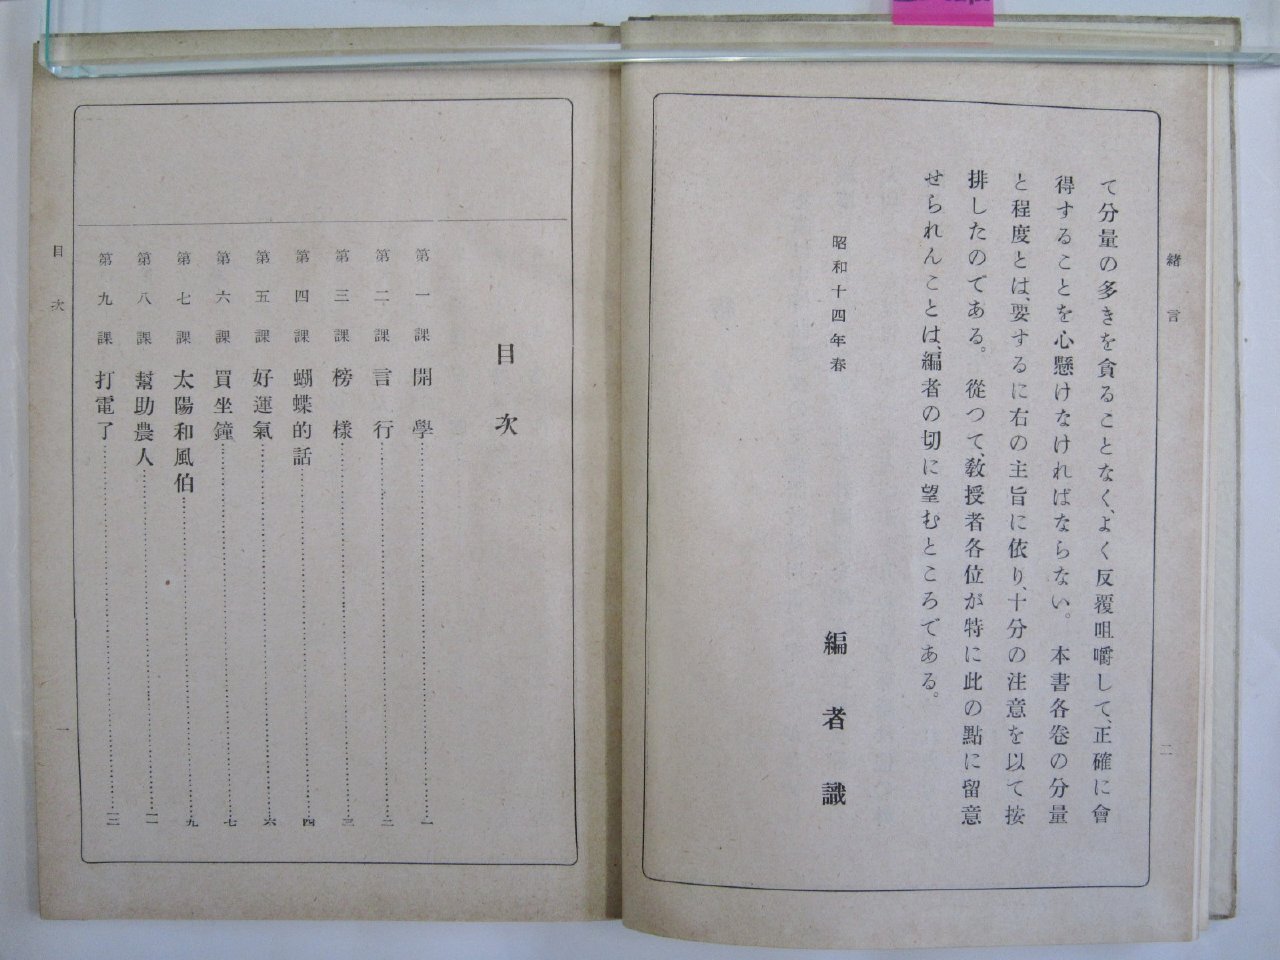 緒言
二
て分量の多きを貪ることなく、よく反覆咀嚼して、正確に會
得することを心懸けなければならない。本書各卷の分量
と程度とは、要するに右の主旨に依り、十分の注意を以て按
排したのである。從つて、敎授者各位が特に此の點に留意
せられんことは、編者の切に望むところである。
昭和十四年春
編者識
目次
第一課 開學……一
第二課 言行……二
第三課 榜樣……三
第四課 蝴蝶的話……四
第五課 好運氣……六
第六課 買坐鐘……七
第七課 太陽和風伯……九
第八課 幫助農人……一一
第九課 打電了……一三
目次
一